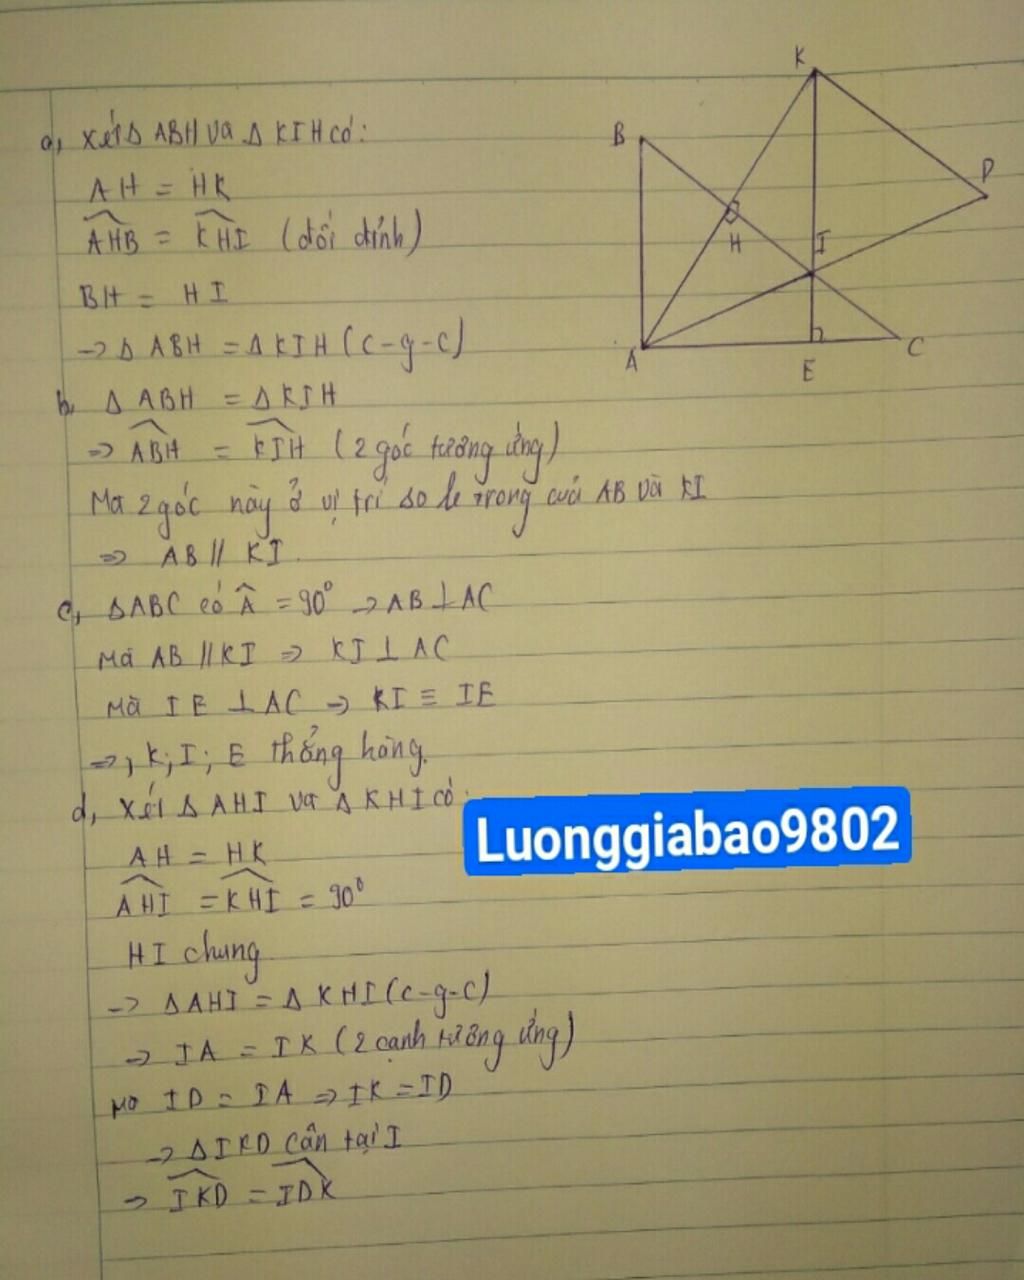 a, Xét Δ ABH và Δ KIH có:
AH = HK
AHB = KHI (đối đỉnh)
BH = HI
→ Δ ABH = Δ KIH (c-g-c)
b, Δ ABH = Δ KIH
⇒ ABH = KIH (2 góc tương ứng)
Mà 2 góc này ở vị trí so le trong của AB và KI
⇒ AB // KI.
c, ΔABC có Â = 90° → AB ⊥ AC
Mà AB // KI ⇒ KI ⊥ AC
Mà IE ⊥ AC → KI ≡ IE
⇒, K; I; E thẳng hàng.
d, Xét Δ AHI và Δ KHI có:
AH = HK
AHI = KHI = 90°
HI chung
→ ΔAHI = Δ KHI (c-g-c)
⇒ IA = IK (2 cạnh tương ứng)
Mà ID = IA ⇒ IK = ID
→ ΔIKD cân tại I
→ IKD = IDK
K
B
D
H
I
A
E
C
Luonggiabao9802